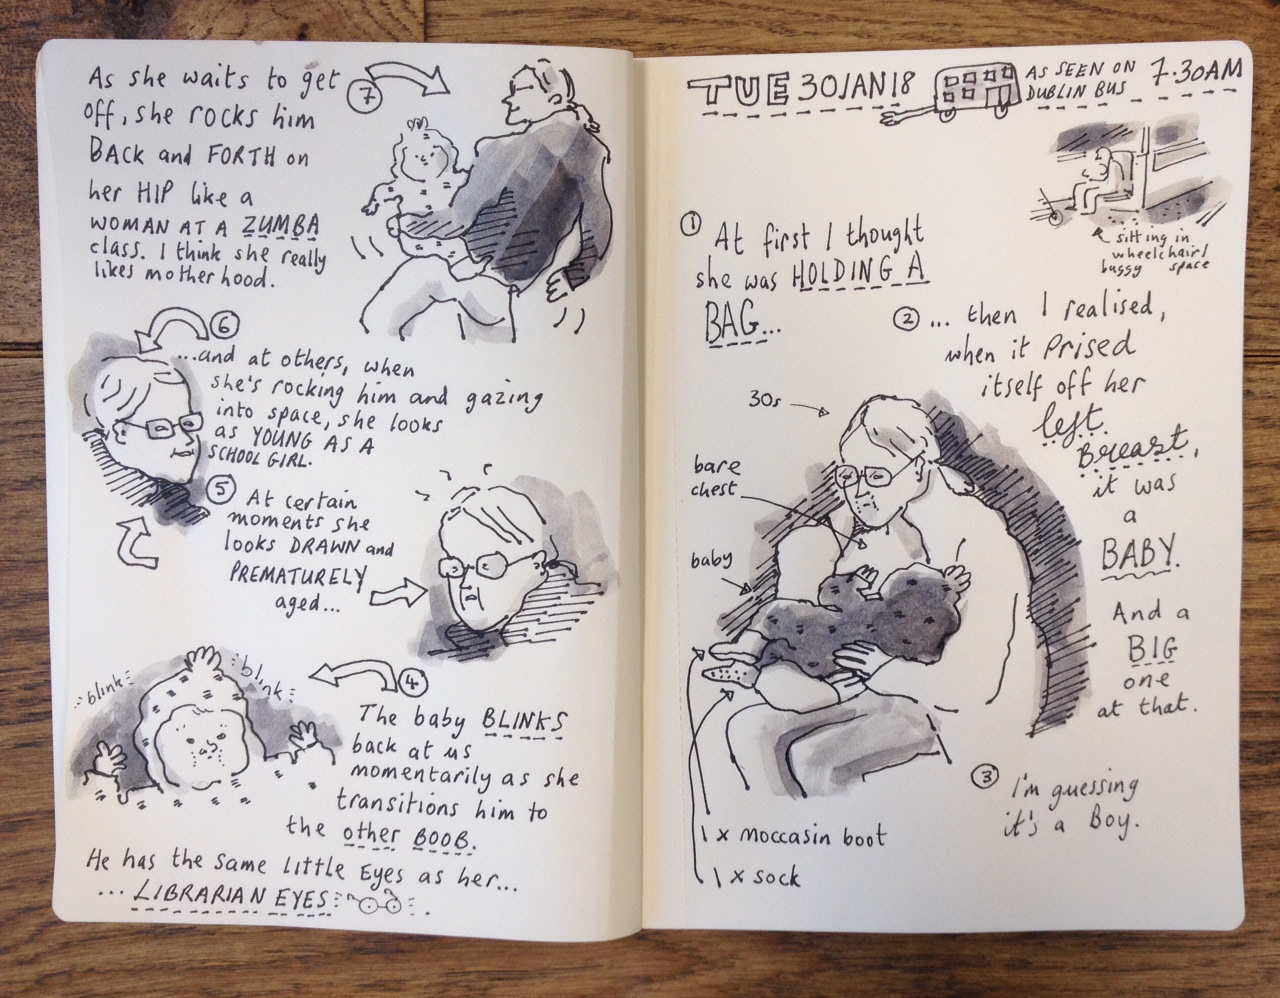 TUE 30 JAN 18
AS SEEN ON
DUBLIN BUS
7.30AM
sitting in
wheelchair/
buggy space
① At first I thought
she was HOLDING A
BAG...
② ... then I realised,
when it prised
itself off her
left
Breast,
it was
a
BABY.
And a
BIG
one
at that.
30s
bare
chest
baby
1 x moccasin boot
1 x sock
③ I'm guessing
it's a Boy.
④
The baby BLINKS
back at us
momentarily as she
transitions him to
the other BOOB.
He has the same little Eyes as her...
... LIBRARIAN EYES
blink
blink
⑤ At certain
moments she
looks DRAWN and
PREMATURELY
aged...
⑥
...and at others, when
she's rocking him and gazing
into space, she looks
as YOUNG AS A
SCHOOL GIRL.
⑦
As she waits to get
off, she rocks him
BACK and FORTH on
her HIP like a
WOMAN AT A ZUMBA
class. I think she really
likes motherhood.